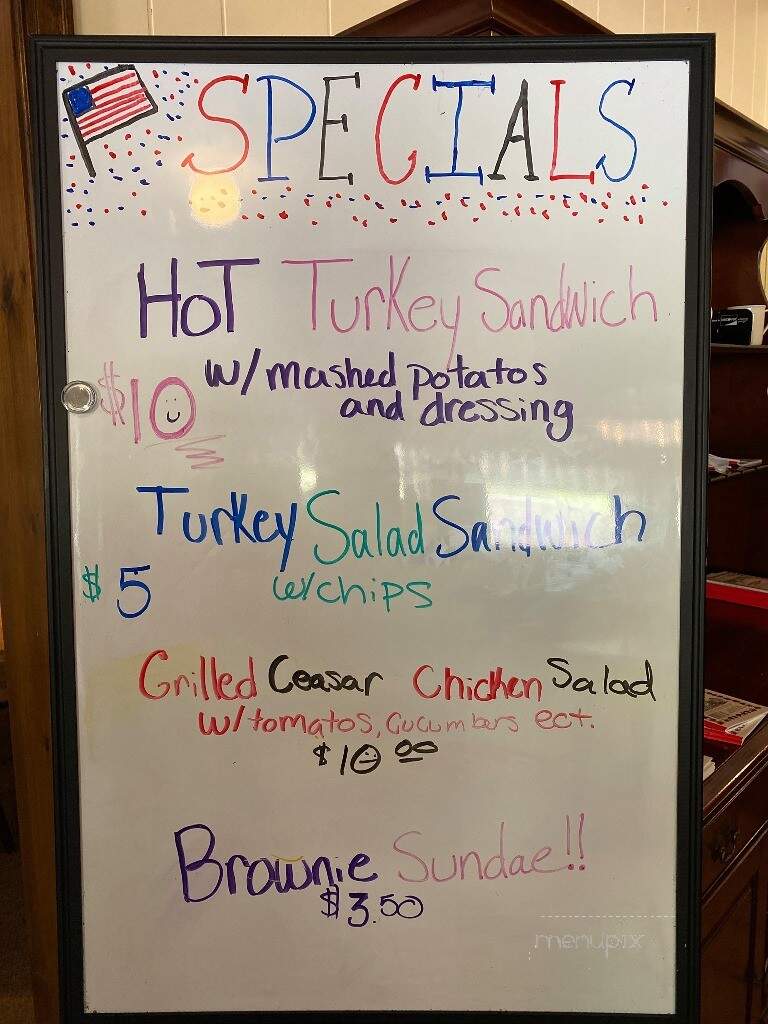 SPECIALS
HOT Turkey Sandwich
$10 w/mashed potatos
and dressing
Turkey Salad Sandwich
$5 w/chips
Grilled Ceasar Chicken Salad
w/tomatos, Cucumbers ect.
$10 00
Brownie Sundae!!
$3.50
menupix